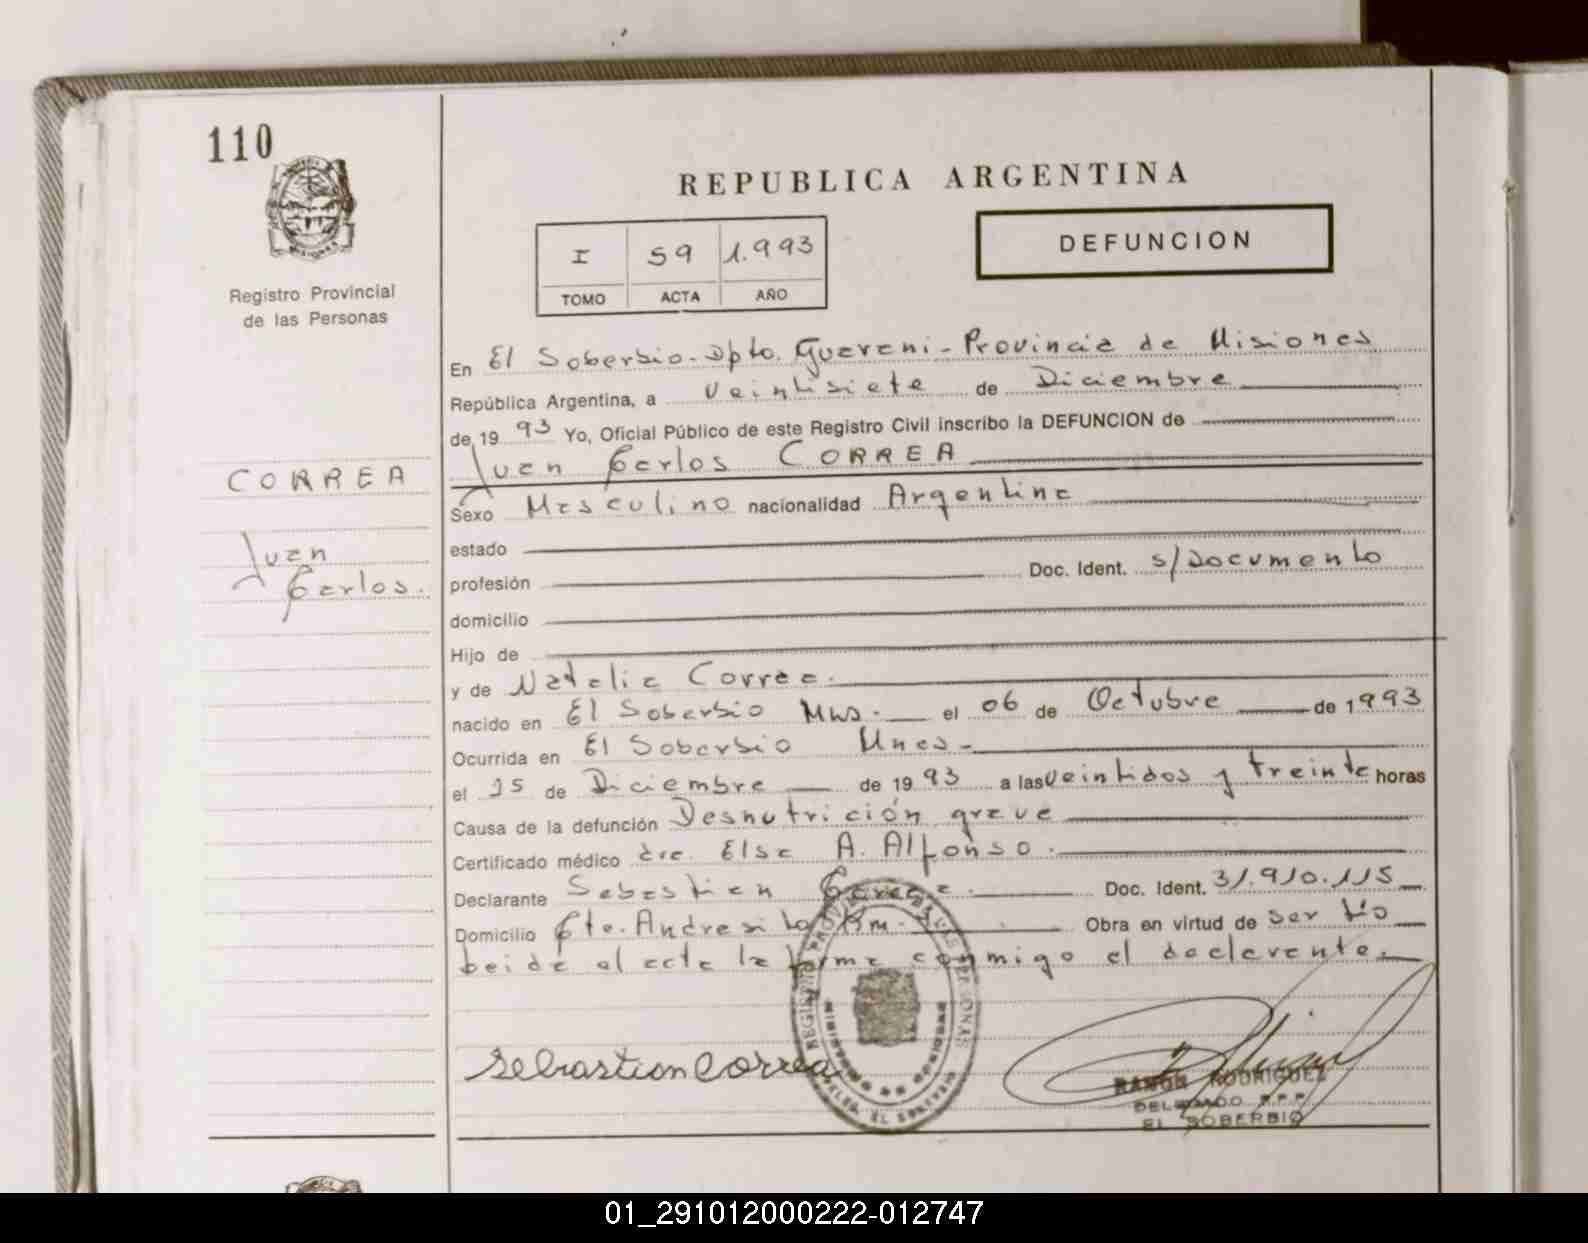 110
REPUBLICA ARGENTINA
I 59 1.993
TOMO ACTA AÑO
DEFUNCION
Registro Provincial
de las Personas
CORREA
Juan
Carlos.
En El Soberbio-Dpto. Guarani-Provincia de Misiones
República Argentina, a veintisiete de Diciembre
de 19 93 Yo, Oficial Público de este Registro Civil inscribo la DEFUNCION de
Juan Carlos CORREA
Sexo Masculino nacionalidad Argentina
estado
profesión Doc. Ident. s/Documento
domicilio
Hijo de
y de Natalia Correa.
nacido en El Soberbio Mns. el 06 de Octubre de 1993
Ocurrida en El Soberbio Mnes-
el 25 de Diciembre de 19 93 a las veintidos y treinta horas
Causa de la defunción Desnutrición grave
Certificado médico dra. Elsa A. Alfonso.
Declarante Sebastian Correa. Doc. Ident. 31.910.115
Domicilio Cte. Andresito Km. Obra en virtud de ser tio
Leida el acta la firma conmigo el declarante.
Sebastian Correa
REGISTRO PROVINCIAL DE LAS PERSONAS
MINISTERIO DE GOBIERNO
EL SOBERBIO
RAMON RODRIGUEZ
DELEGADO R.P.P.
EL SOBERBIO
01_291012000222-012747